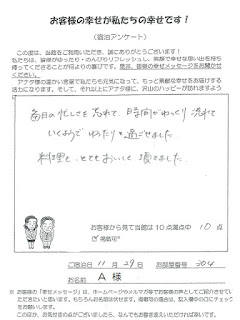 お客様の幸せが私たちの幸せです！
（宿泊アンケート）
この度は、当館をご利用いただき、誠にありがとうございます！
私たちは、皆様がゆったり・のんびりリフレッシュし、笑顔で幸せな思い出を持ち
帰ってくださることが何よりの喜びです。是非、皆様の幸せメッセージをお聞かせ
ください。
アナタ様の温かい言葉で私たちも元気になって、もっと素敵な幸せをお届けする
活力になります。そして、それ以上にアナタ様に、沢山のハッピーが訪れますよう
毎日の忙しさを忘れて、時間がゆっくり流れて
いくようどゆったりと過ごせました
料理も、とてもおいしく頂きました。
お客様から見て当館は10点満点中 10 点
ご宿泊日 11月29日 お部屋番号 304
お名前 A 様
※ お客様の「幸せメッセージ」は、ホームページやメルマガ等でお客様の声としてご紹介させてい
ただきたいと思います。もちろんお名前は伏せます。掲載可の場合は、記入欄中の□にチェック
をお願いします。
このほか、お気付きの点がございましたら、なんでもお書き添えいただければ幸いです。